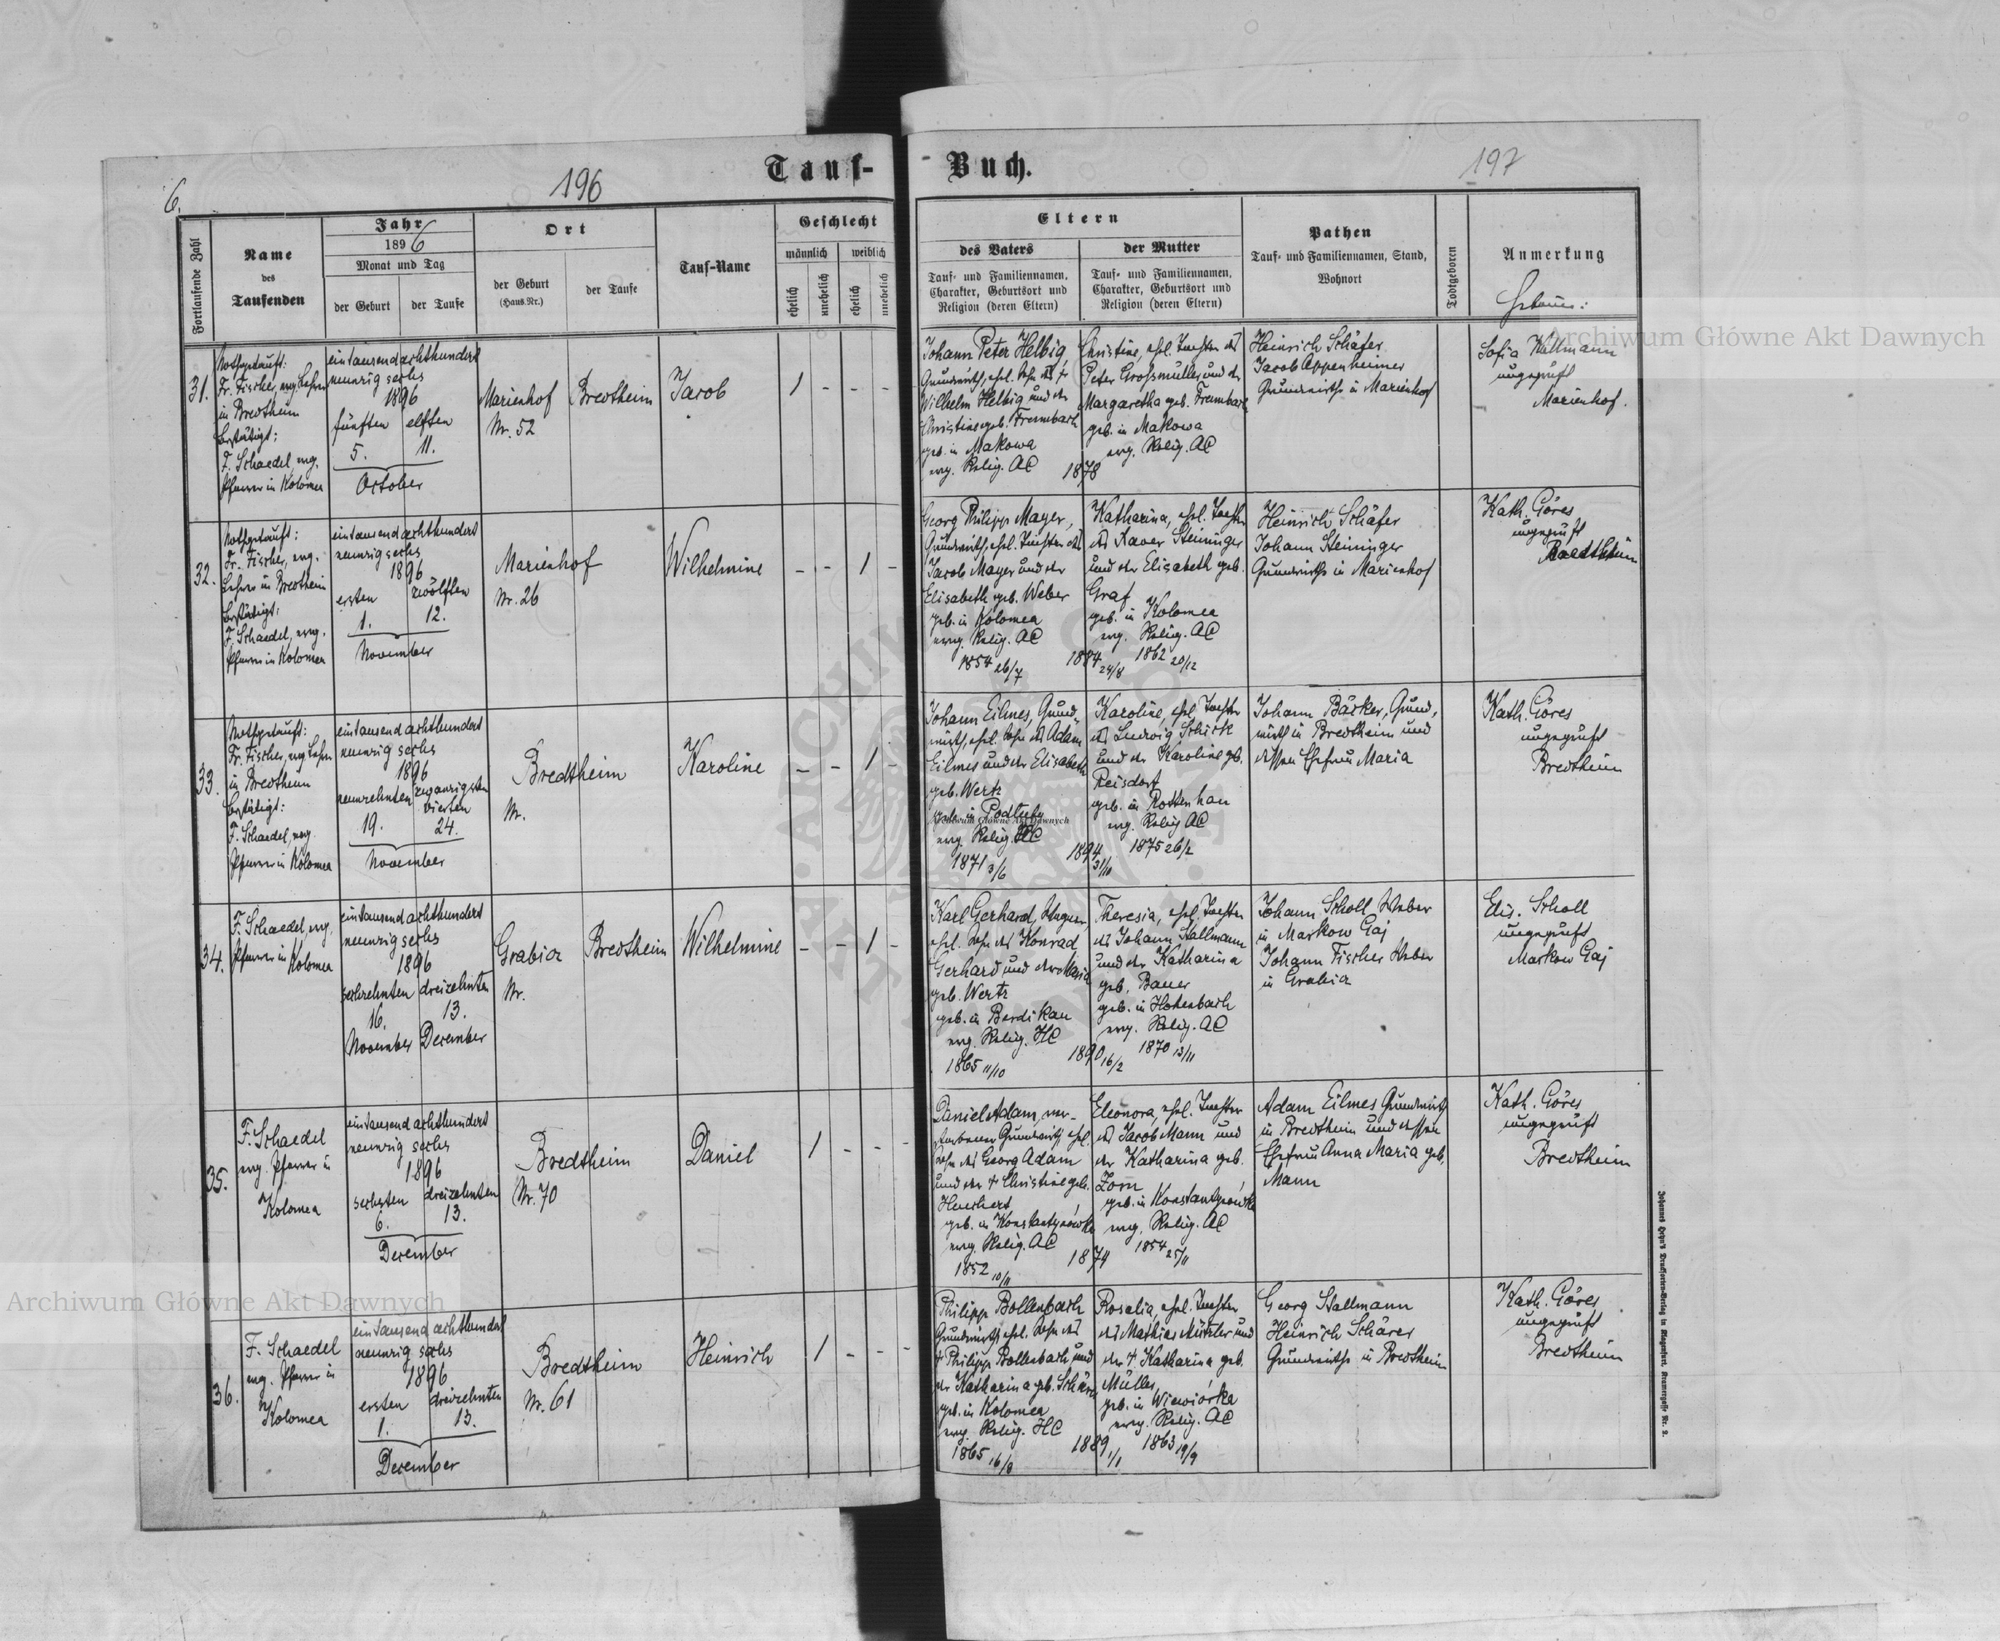 6.
196
Tauf-
Buch.
197
Fortlaufende Zahl
Name
des
Taufenden
Jahr
1896
Monat und Tag
der Geburt
der Taufe
Ort
der Geburt
(Haus-Nr.)
der Taufe
Tauf-Name
Geschlecht
männlich
weiblich
ehelich
unehelich
ehelich
unehelich
Eltern
des Vaters
Tauf- und Familiennamen,
Charakter, Geburtsort und
Religion (deren Eltern)
der Mutter
Tauf- und Familiennamen,
Charakter, Geburtsort und
Religion (deren Eltern)
Pathen
Tauf- und Familiennamen, Stand,
Wohnort
Todtgeboren
Anmerkung
31.
Nothgetauft:
Fr. Fischer, evg. Lehrer
in Bredtheim
bestätigt:
F. Schaedel, evg.
Pfarrer in Kolomea
eintausendachthundert
neunzig sechs
1896
fünften elften
5. 11.
October
Marienhof
Nr. 52
Bredtheim
Jacob
1 - - -
Johann Peter Helbig
Grundwirth, ehel. Sohn des †
Wilhelm Helbig und der
Christine geb. Frembach
geb. in Makowa
evg. Relig. AC
1878
Christine, ehel. Tochter des
Peter Grossmuller und der
Margaretha geb. Frembach
geb. in Makowa
evg. Relig. AC
Heinrich Schäfer
Jacob Oppenheimer
Grundwirthe in Marienhof
Sofia Wallmann
ungeprüft
Marienhof.
32.
Nothgetauft:
Fr. Fischer, evg.
Lehrer in Bredtheim
bestätigt:
F. Schaedel, evg.
Pfarrer in Kolomea
eintausendachthundert
neunzig sechs
1896
ersten zwölften
1. 12.
November
Marienhof
Nr. 26
Wilhelmine
- - 1 -
Georg Philipp Mayer,
Grundwirth, ehel. Tochter des
Jacob Mayer und der
Elisabeth geb. Weber
geb. in Kolomea
evg. Relig. AC
1854 26/7
1884 24/8
Katharina, ehel. Tochter
des Xaver Steininger
und der Elisabeth geb.
Graf
geb. in Kolomea
evg. Relig. AC
1862 20/12
Heinrich Schäfer
Johann Steininger
Grundwirthe in Marienhof
Kath. Göres
ungeprüft
Bredtheim
33.
Nothgetauft:
Fr. Fischer, evg. Lehrer
in Bredtheim
bestätigt:
F. Schaedel, evg.
Pfarrer in Kolomea
eintausendachthundert
neunzig sechs
1896
neunzehnten zwanzigsten
vierten
19. 24.
November
Bredtheim
Nr.
Karoline
- - 1 -
Johann Eilmes, Grund-
wirth, ehel. Sohn des Adam
Eilmes und der Elisabeth
geb. Wertz
geb. in Podluby
evg. Relig. HC
1871 3/6
1894 31/10
Karoline, ehel. Tochter
des Ludwig Schick
und der Karoline geb.
Reisdorf
geb. in Rottenhan
evg. Relig. AC
1875 26/2
Johann Bäcker, Grund-
wirth in Bredtheim und
dessen Ehefrau Maria
Kath. Göres
ungeprüft
Bredtheim
34.
F. Schaedel, evg.
Pfarrer in Kolomea
eintausendachthundert
neunzig sechs
1896
sechzehnten dreizehnten
16. 13.
November December
Grabicz
Nr.
Bredtheim
Wilhelmine
- - 1 -
Karl Gerhard, Wagner
ehel. Sohn des Konrad
Gerhard und der Maria
geb. Wertz
geb. in Berdikau
evg. Relig. HC
1865 11/10
1890 16/2
Theresia, ehel. Tochter
des Johann Stallmann
und der Katharina
geb. Bauer
geb. in Hohenbach
evg. Relig. AC
1870 13/11
Johann Scholl Weber
in Markow Gaj
Johann Fischer Weber
in Grabicz
Elis. Scholl
ungeprüft
Markow Gaj
35.
F. Schaedel
evg. Pfarrer in
Kolomea
eintausendachthundert
neunzig sechs
1896
sechsten dreizehnten
6. 13.
December
Bredtheim
Nr. 70
Daniel
1 - - -
Daniel Adam, ver-
storbener Grundwirth, ehel.
Sohn des Georg Adam
und der † Christine geb.
geb. in Konstantynówka
evg. Relig. AC
1852 10/11
1874
Eleonora, ehel. Tochter
des Jacob Mann und
der Katharina geb.
Zorn
geb. in Konstantynówka
evg. Relig. AC
1854 25/11
Adam Eilmes Grundwirth
in Bredtheim und dessen
Ehefrau Anna Maria geb.
Mann
Kath. Göres
ungeprüft
Bredtheim
36.
F. Schaedel
evg. Pfarrer in
Kolomea
eintausendachthundert
neunzig sechs
1896
ersten dreizehnten
1. 13.
December
Bredtheim
Nr. 61
Heinrich
1 - - -
Philipp Bollenbach
Grundwirth, ehel. Sohn des
† Philipp Bollenbach und
der Katharina geb. Schärer
geb. in Kolomea
evg. Relig. HC
1865 16/8
1889 1/1
Rosalia, ehel. Tochter
des Mathias Müller und
der † Katharina geb.
Müller,
geb. in Wiewiórka
evg. Relig. AC
1863 19/9
Georg Stallmann
Heinrich Schärer
Grundwirthe in Bredtheim
Kath. Göres
ungeprüft
Bredtheim
Johannes Heyn's Drucksorten-Verlag in Klagenfurt, Kramergasse Nr. 2.
Archiwum Główne Akt Dawnych
Archiwum Główne Akt Dawnych
Archiwum Główne Akt Dawnych